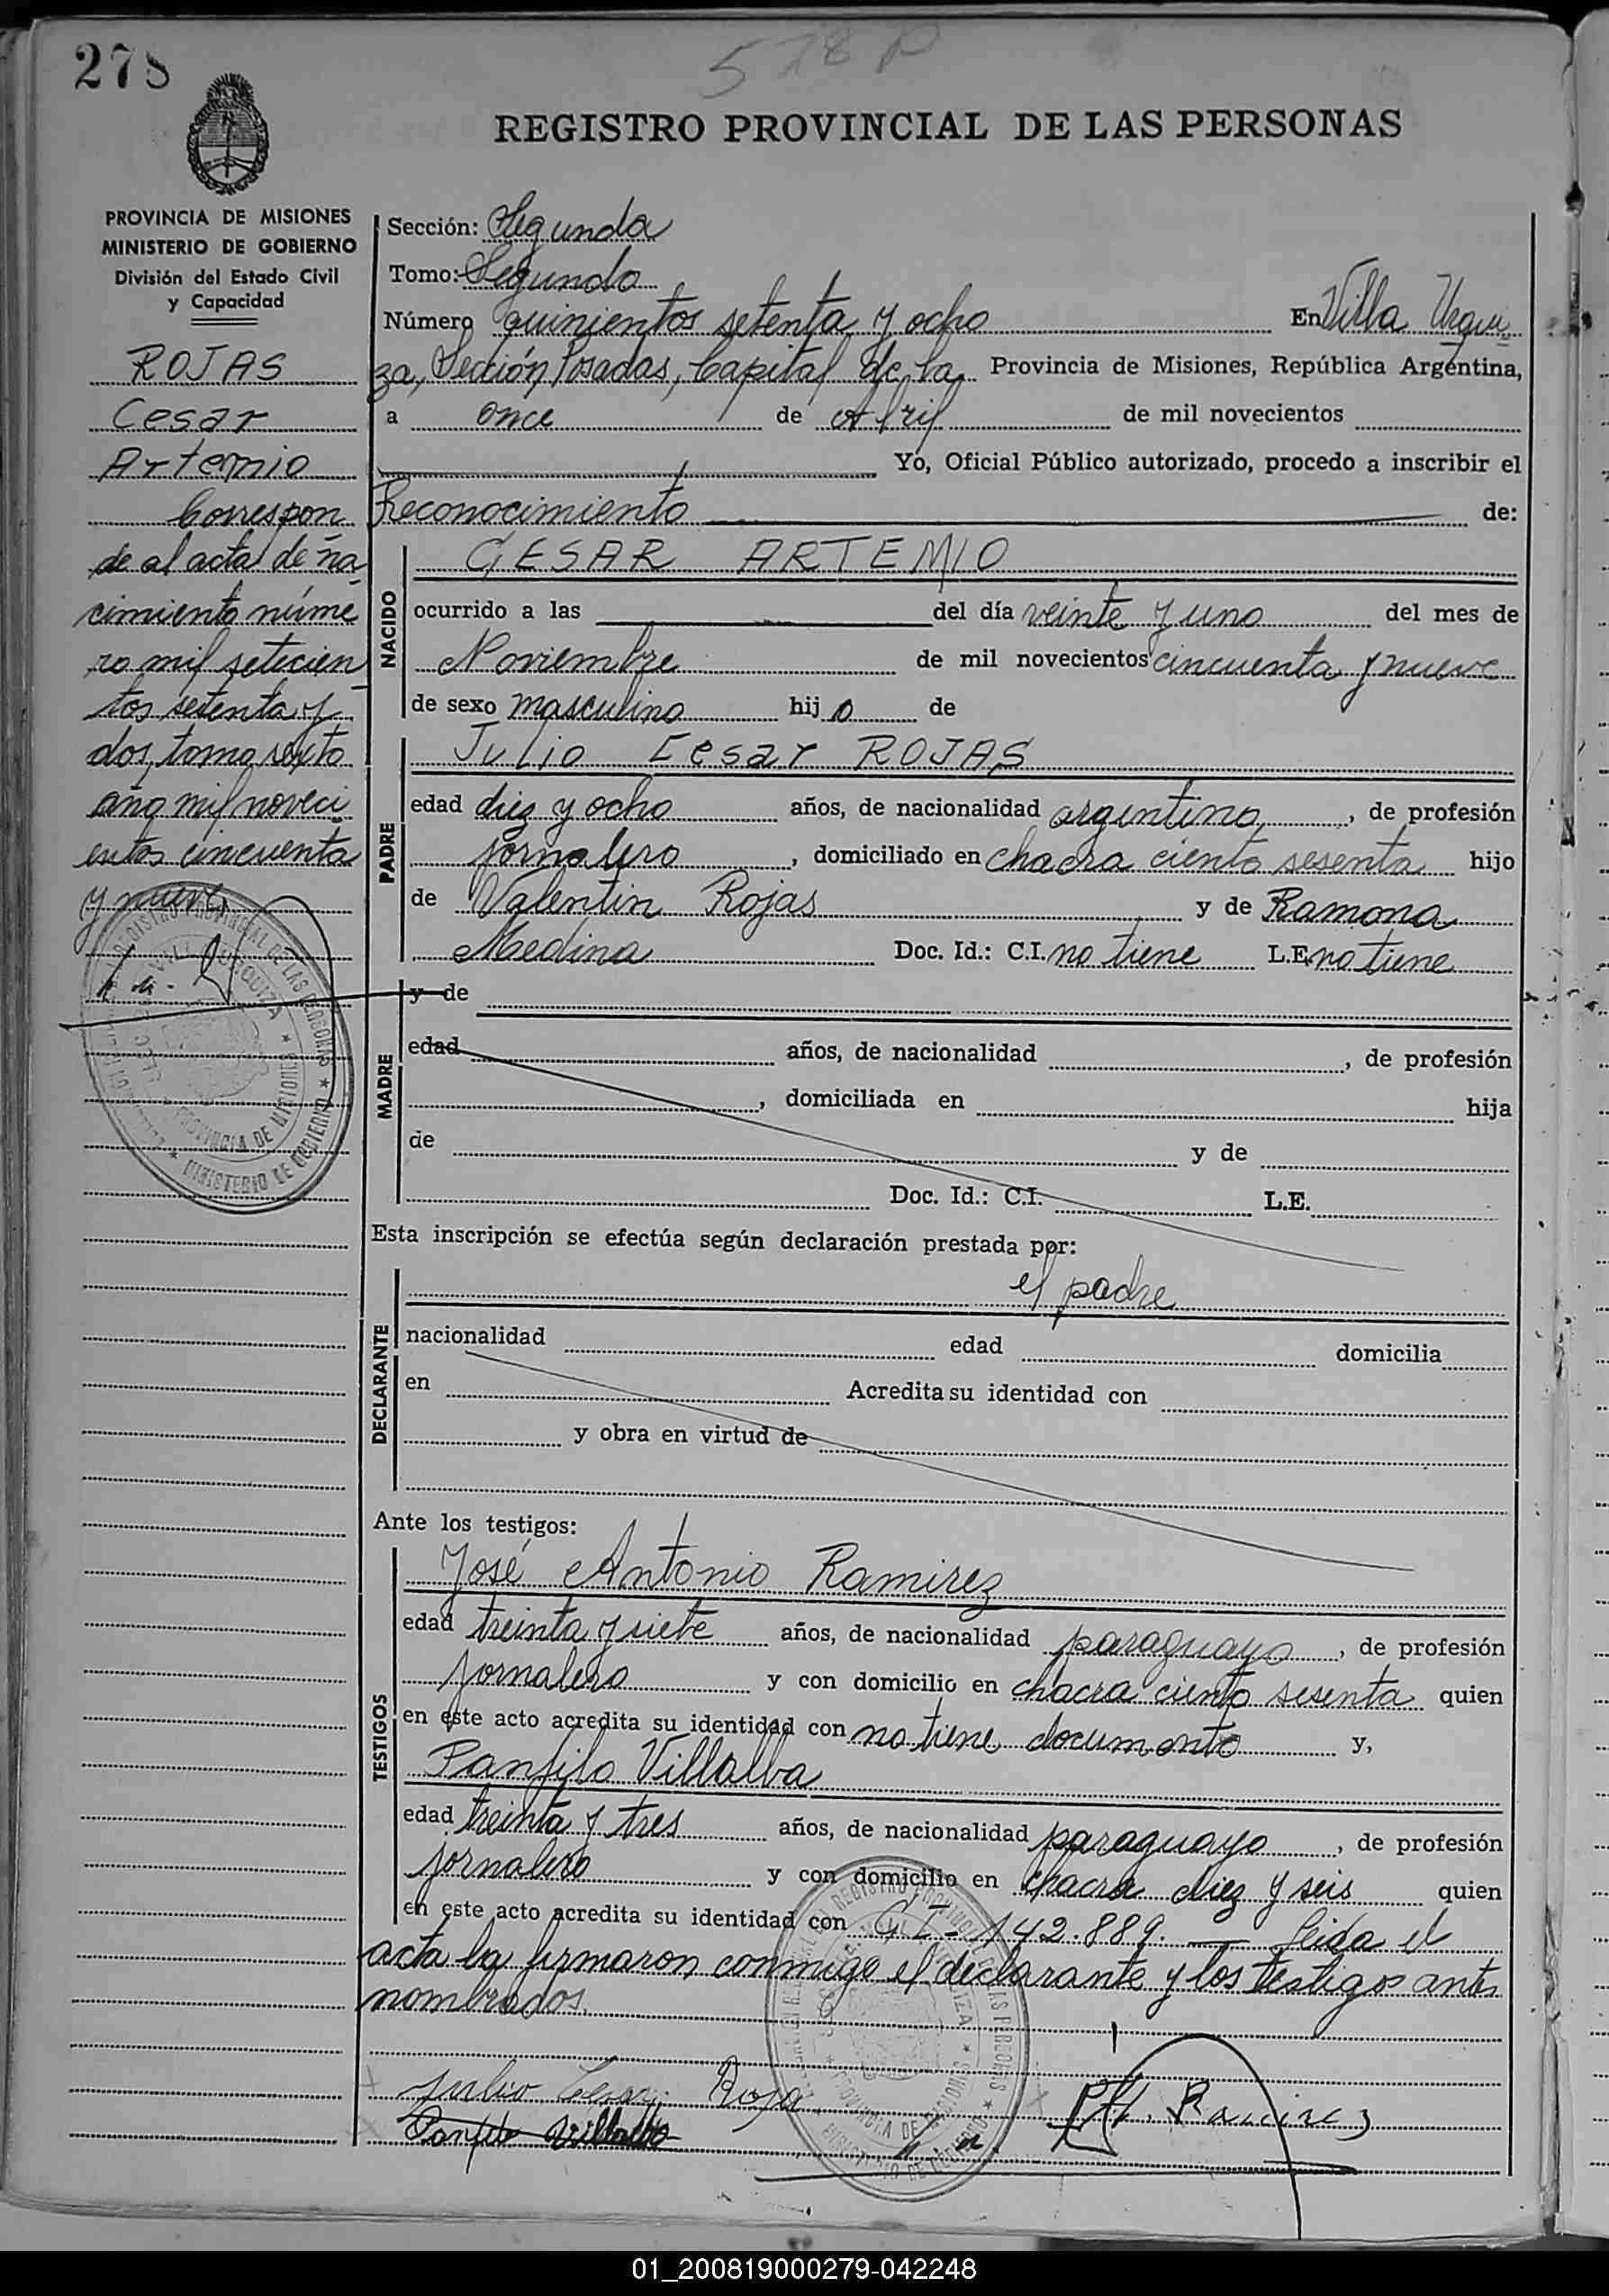 278
578 P
REGISTRO PROVINCIAL DE LAS PERSONAS
PROVINCIA DE MISIONES
MINISTERIO DE GOBIERNO
División del Estado Civil
y Capacidad
ROJAS
Cesar
Artemio
Correspon
de al acta de na
cimiento núme
ro mil setecien
tos setenta y
dos, tomo sexto
año mil noveci
entos cincuenta
y nueve
Sección: Segunda
Tomo: Segundo
Número quinientos setenta y ocho En Villa Urqui
za, Sección Posadas, Capital de la Provincia de Misiones, República Argentina,
a once de Abril de mil novecientos
Yo, Oficial Público autorizado, procedo a inscribir el
Reconocimiento de:
NACIDO
CESAR ARTEMIO
ocurrido a las del día veinte y uno del mes de
Noviembre de mil novecientos cincuenta y nueve
de sexo masculino hijo de
PADRE
Julio Cesar ROJAS
edad diez y ocho años, de nacionalidad argentino, de profesión
jornalero, domiciliado en chacra ciento sesenta hijo
de Valentin Rojas y de Ramona
Medina Doc. Id.: C.I. no tiene L.E. no tiene
MADRE
y de
edad años, de nacionalidad , de profesión
, domiciliada en hija
de y de
Doc. Id.: C.I. L.E.
Esta inscripción se efectúa según declaración prestada por:
el padre
DECLARANTE
nacionalidad edad domicilia
en Acredita su identidad con
y obra en virtud de
Ante los testigos:
TESTIGOS
José Antonio Ramirez
edad treinta y siete años, de nacionalidad paraguayo, de profesión
jornalero y con domicilio en chacra ciento sesenta quien
en este acto acredita su identidad con no tiene documento y,
Panfilo Villalba
edad treinta y tres años, de nacionalidad paraguayo, de profesión
jornalero y con domicilio en chacra diez y seis quien
en este acto acredita su identidad con C.I. 142.889. — Leida el
acta la firmaron conmigo el declarante y los testigos antes
nombrados.
Julio Cesar Roja
Panfilo Villalba
Ramirez
01_200819000279-042248